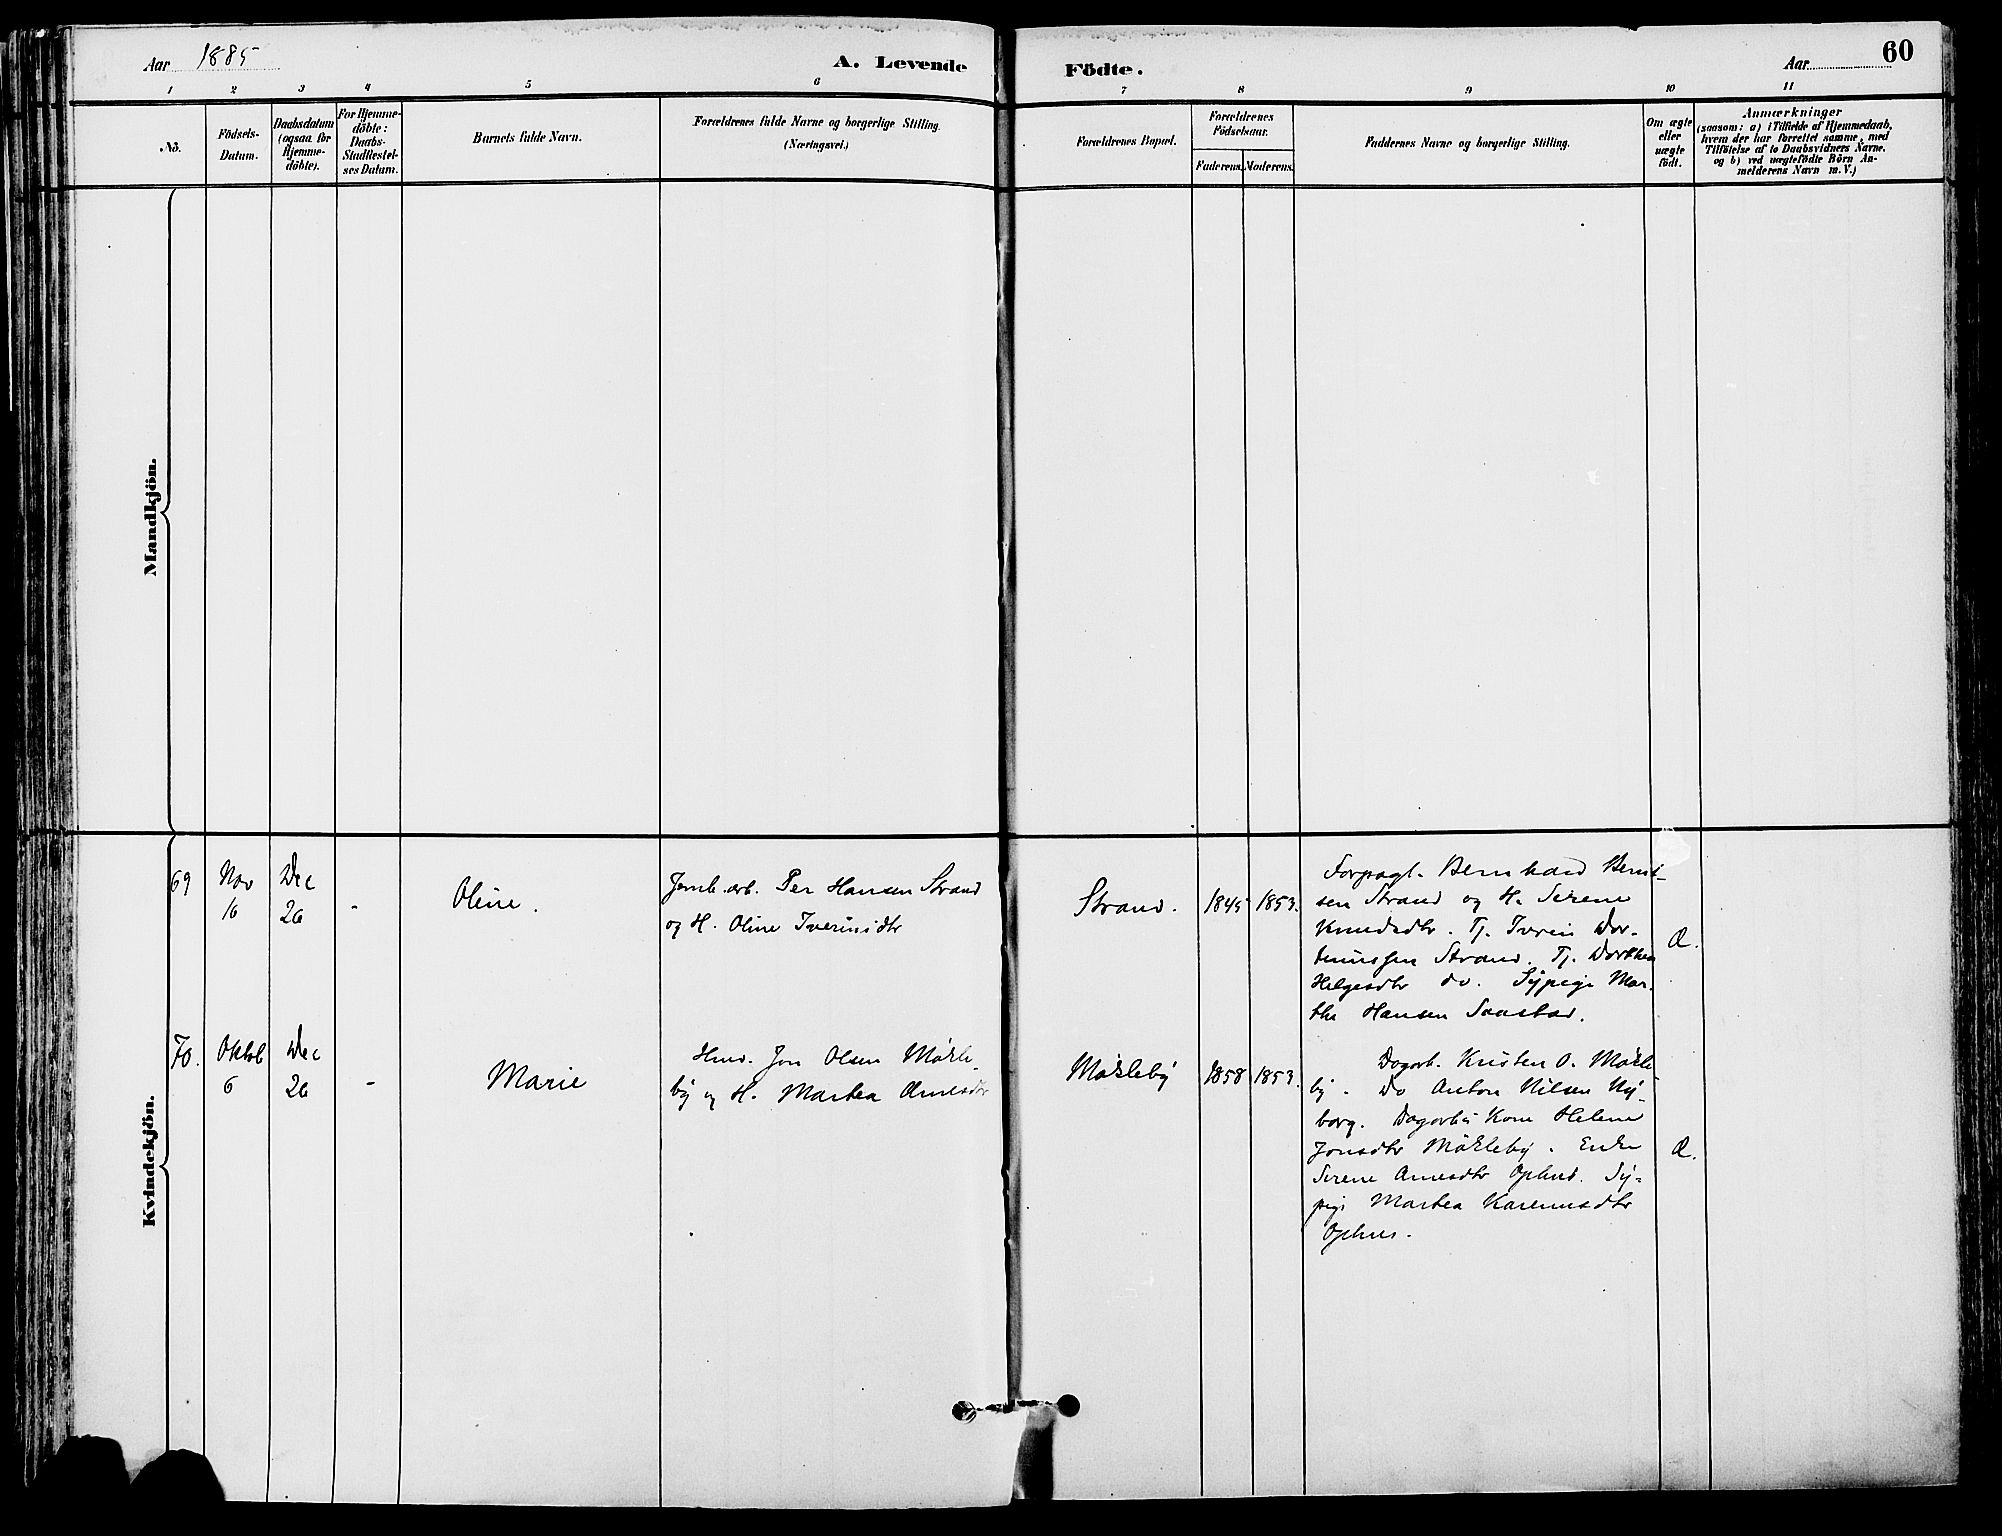 Aar 1885
A. Levende
Födte.
Aar
60
1 2 3 4 5 6 7 8 9 10 11
No.
Födsels-
Datum.
Daabsdatum
(ogsaa for
Hjemme-
döbte).
For Hjemme-
döbte:
Daabs-
Stadfæstel-
ses Datum.
Barnets fulde Navn.
Forældrenes fulde Navne og borgerlige Stilling.
(Næringsvei.)
Forældrenes Bopæl.
Forældrenes
Födselsaar.
Faderens. Moderens.
Faddernes Navne og borgerlige Stilling.
Om ægte
eller
uægte
födt.
Anmærkninger
(saasom: a) i Tilfælde af Hjemmedaab,
hvem der har forrettet samme, med
Tilföielse af to Daabsvidners Navne,
og b) ved uægtefödte Börn An-
melderens Navn m.V.)
Mandkjön.
Kvindekjön.
69
Nov
16
Dec
26
-
Oline.
Jernb.arb. Per Hansen Strand
og H. Oline Iverinsdtr
Strand.
1845
1853.
Forpagt. Bernhard Bernt-
sen Strand og H. Serene
Knudsdtr. Tj. Iverin
Strand. Tj. Dorthea
Helgesdtr do. Sypige Mar-
the Hansen Saastad.
Æ.
70.
Oktob
6
Dec
26
-
Marie
Hmd. Jon Olsen Møkle-
by og H. Marthea Arnesdtr
Møkleby
1858
1853.
Dagarb. Kristen O. Møkle-
by. Do Anton Nilsen Ny-
borg. Dagarbs Kone Helene
Jonsdtr Møkleby. Enke
Serene Arnesdtr Ophus. Sy-
pige Marthea Karenusdtr
Ophus.
Æ.